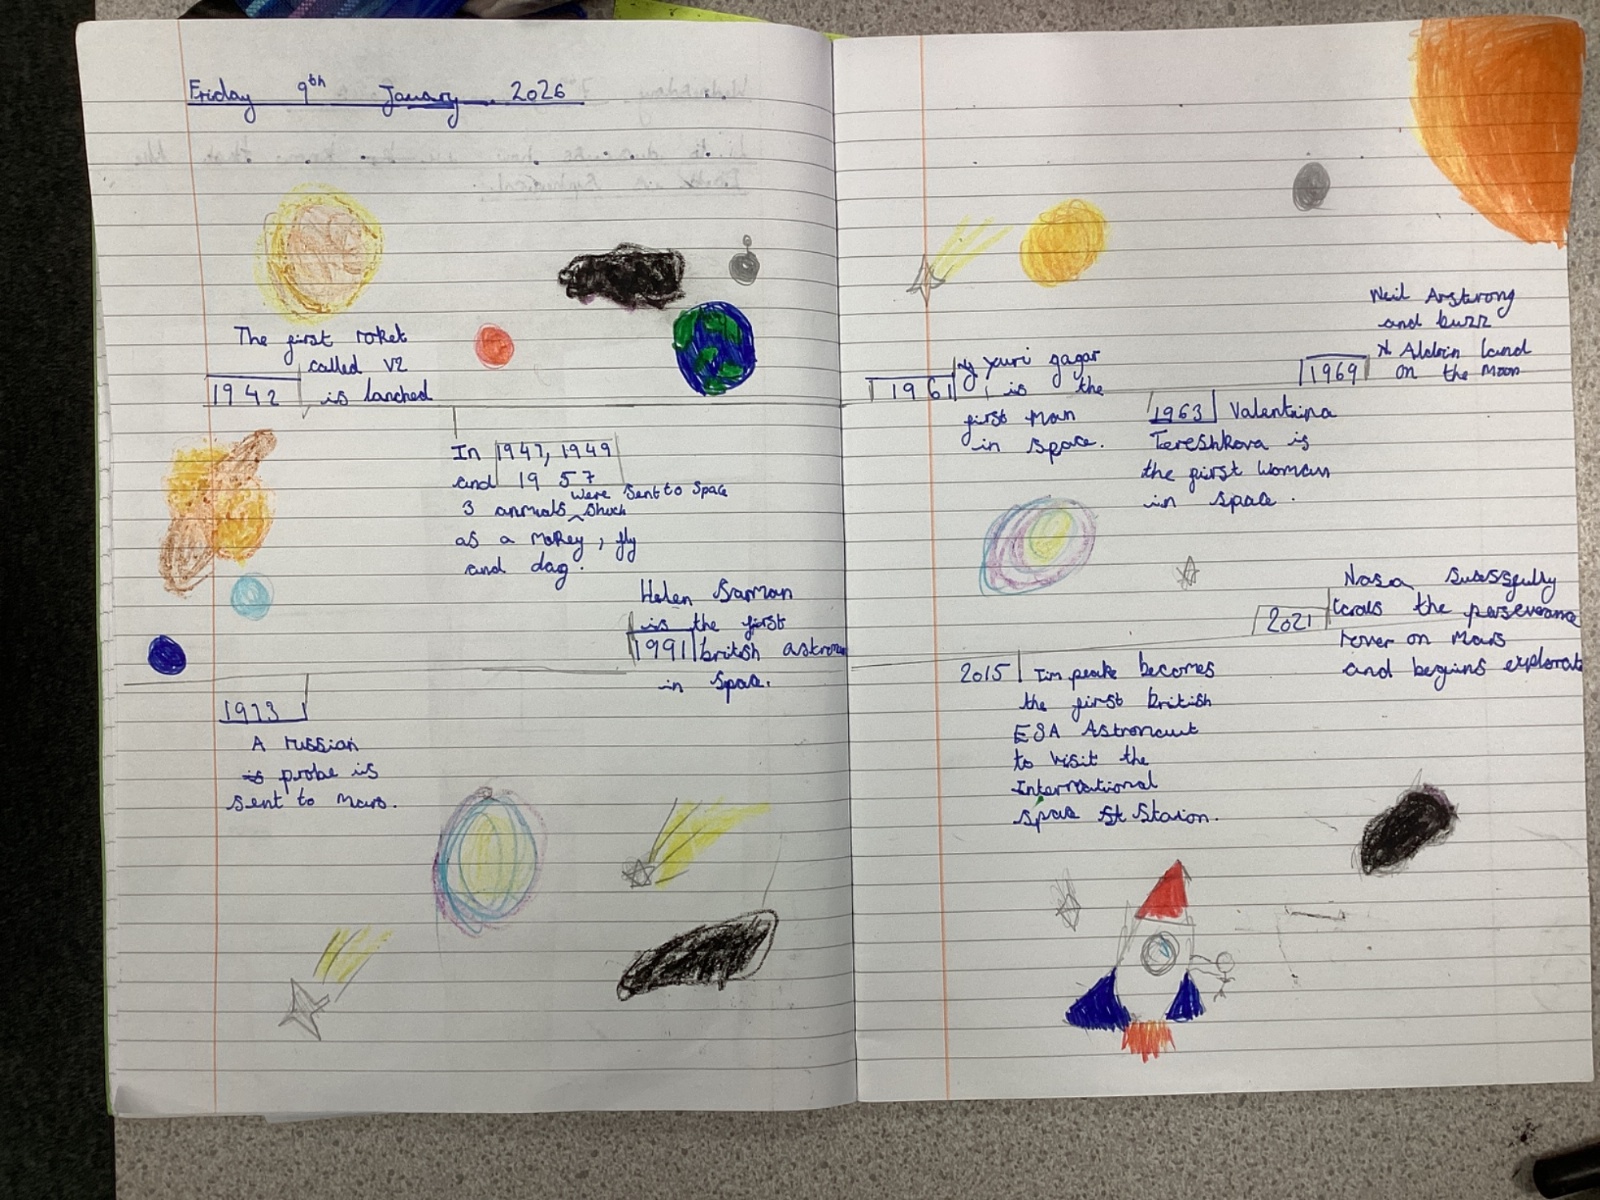 Friday 9th January 2026
The first roket
called V2
1942 is lanched
In 1947, 1949
and 1957
were sent to space
3 anmials ^ shuch
as a mokey, fly
and dag.
1961 yuri gagar
is the
first man
in space.
1963 Valentina
Tereshkova is
the first woman
in space.
Neil Arstrong
and buzz
Aldrin land
1969 on the Moon
1973
A russian
is probe is
sent to mars.
Helen Sarman
is the first
1991 british astron
in space.
2015 Tim peake becomes
the first british
ESA Astronaut
to visit the
International
space St Staion.
Nasa sucssfully
2021 lands the perseverance
rover on Mars
and begins explorati